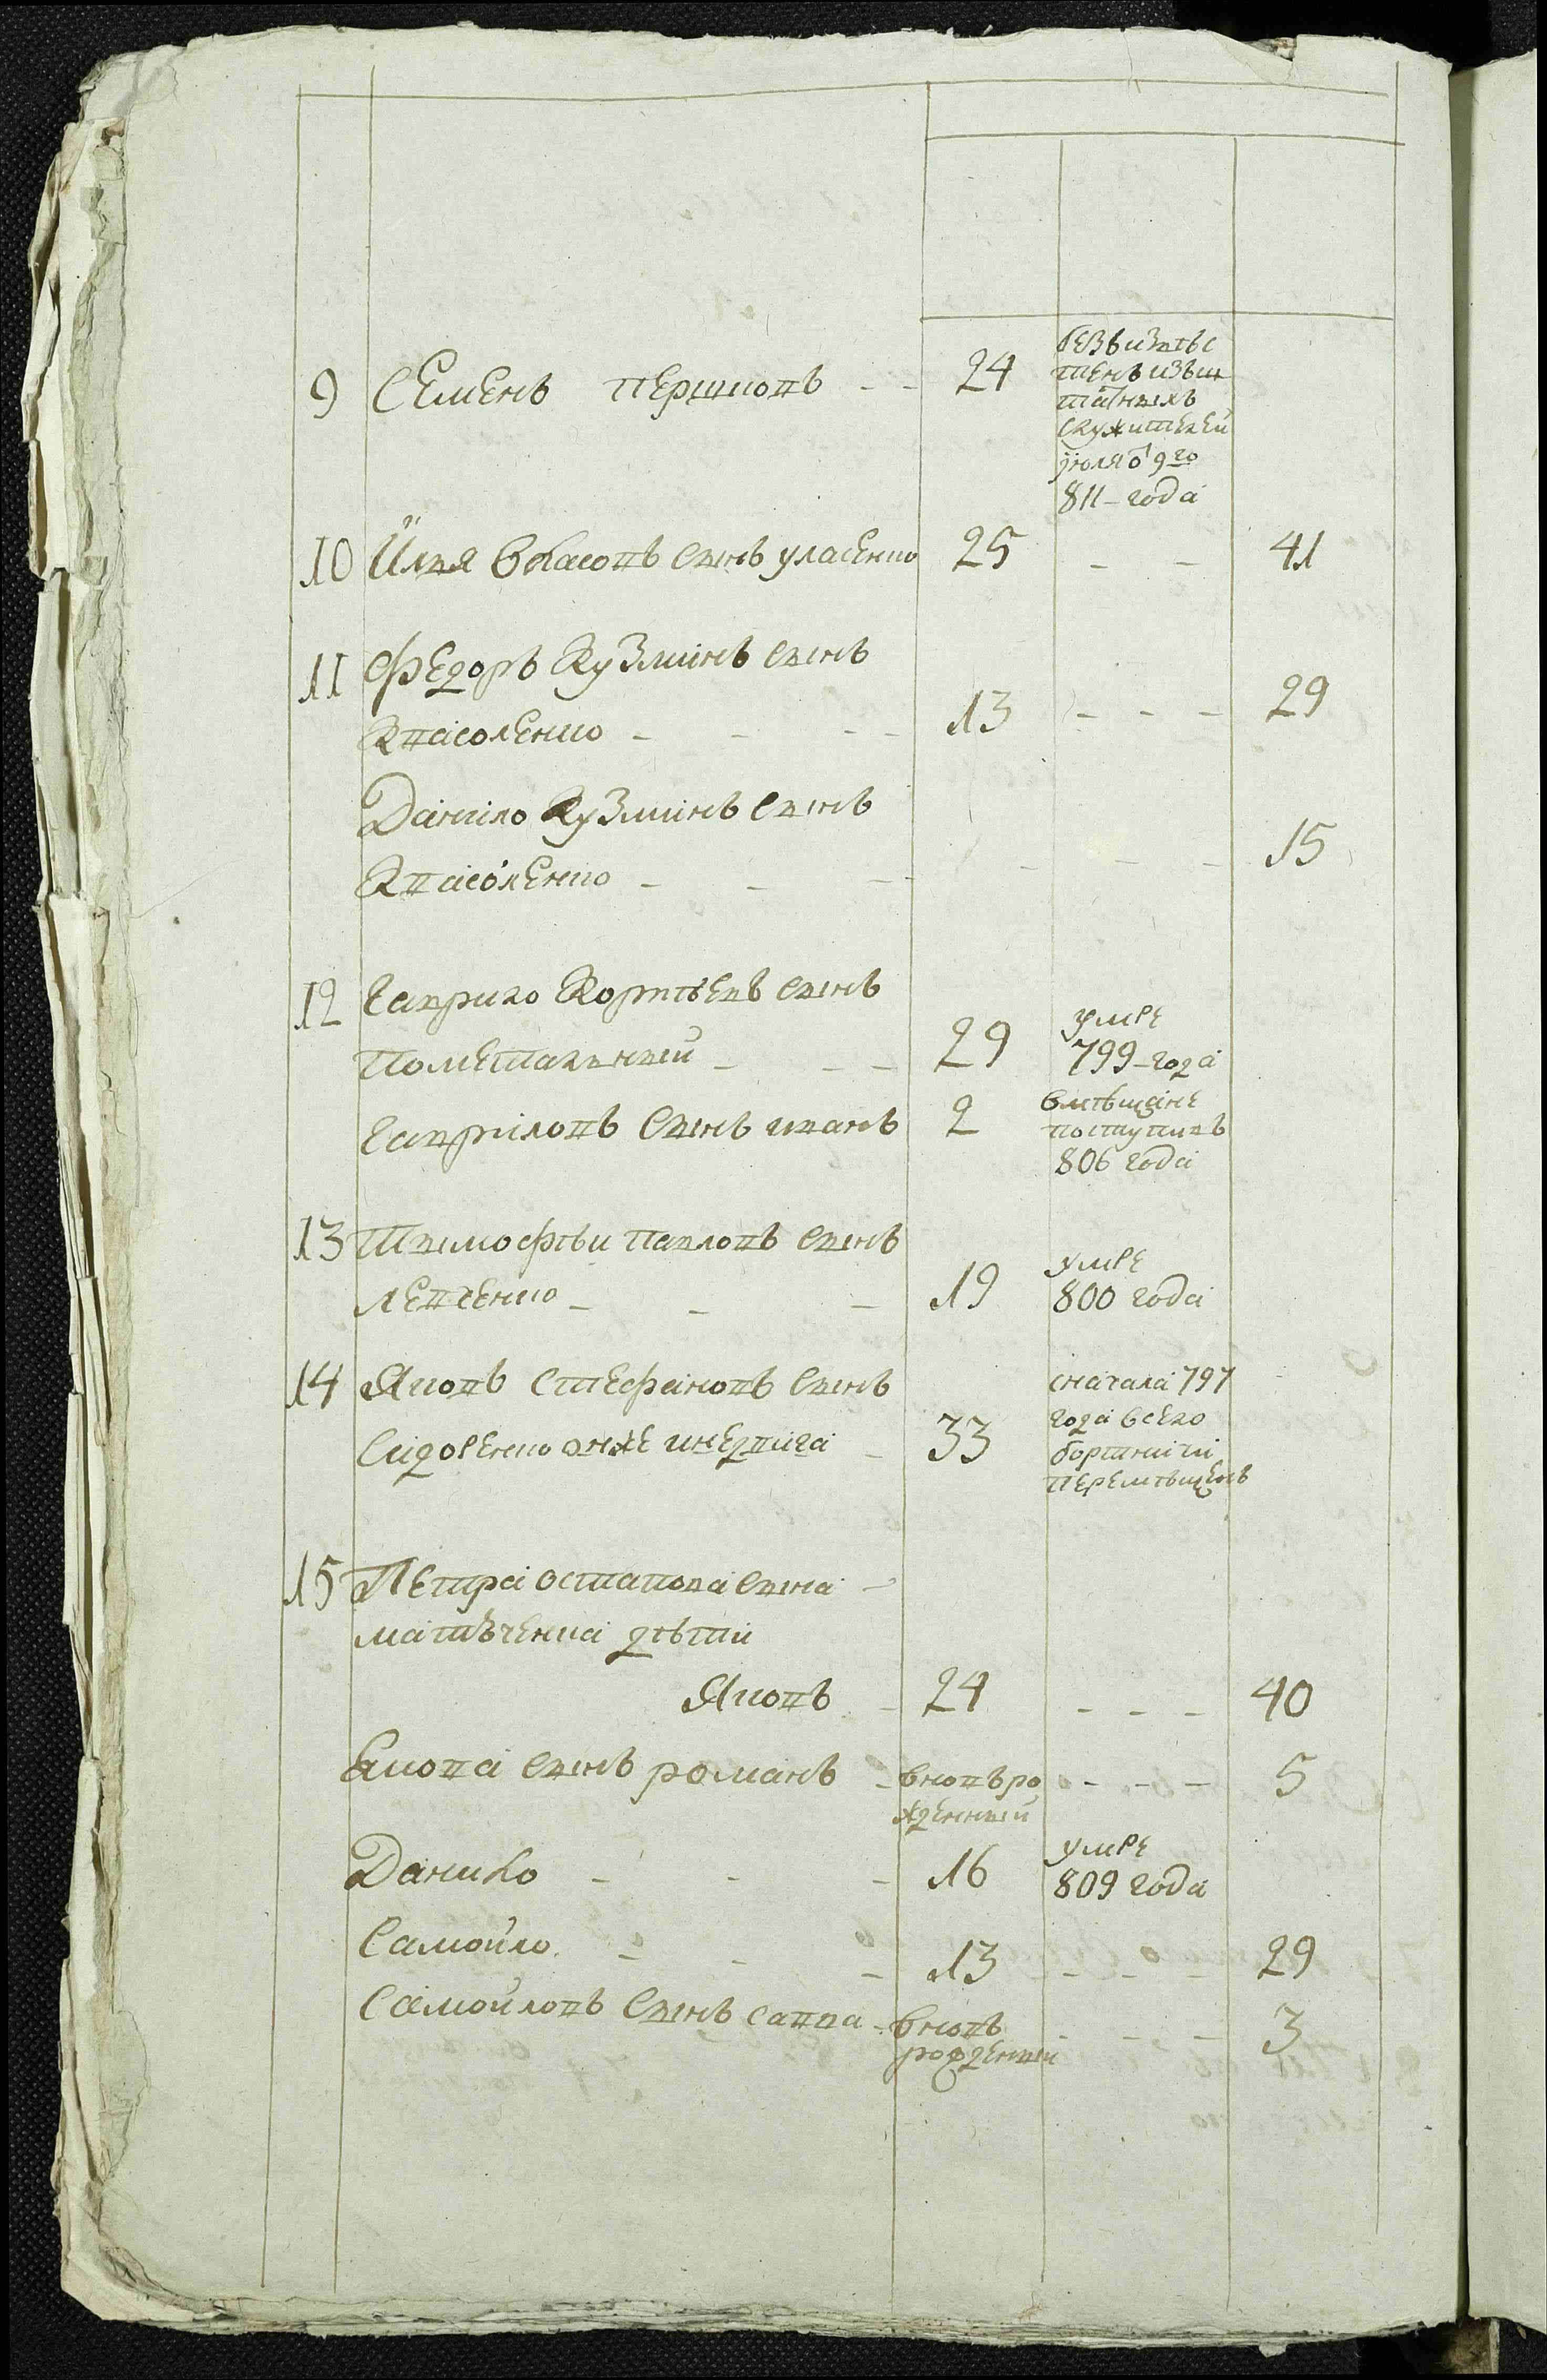 9 Семенъ Першковъ - - 24
безъизвѣс
тенъ изъш
татныхъ
служителей
июля 9го
811 - года
10 Илья Власовъ сынъ уласенко 25 - - 41
11 Федоръ Кузминъ сынъ
Квасоленко - - - - 13 - - - 29
Данило Кузминъ сынъ
Квасоленко - - - - - - 15
12 Гаврило Корнѣевъ сынъ
Пометальный - - - 29
умре
799 - года
Гавриловъ сынъ иванъ 2
вмѣщане
поступилъ
806 года
13 Тимофѣи Павловъ сынъ
Левченко - - - 19
умре
800 года
14 Яковъ Стефановъ сынъ
Сидоренко онже
33
сначала 797
года всело
бортничи
перемѣщенъ
15 Петра остапова сына -
матвѣенка дѣти
Яковъ - 24 - - - 40
Якова сынъ романъ - вновьро
жденный - - - 5
Данило - - - 16
умре
809 года
Самойло - - - 13 - - - 29
Самойловъ сынъ савва - вновь
рожденый - - - 3